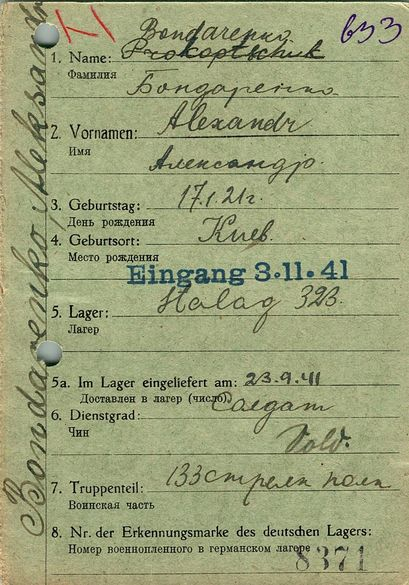 Bondarenko, Aleksandr
633
Bondarenko
1. Name: Prokoptschuk
Фамилия
Бондаренко
2. Vornamen: Alexandr
Имя
Александр.
3. Geburtstag: 17.1.21г.
День рождения
4. Geburtsort: Киев.
Место рождения
Eingang 3.11.41
5. Lager: Stalag 323.
Лагерь
5a. Im Lager eingeliefert am: 23.9.41
Доставлен в лагерь (число),
6. Dienstgrad: Солдат
Чин
Sold.
7. Truppenteil: 133 стрелк полк
Воинская часть
8. Nr. der Erkennungsmarke des deutschen Lagers:
Номер военнопленного в германском лагере
8371